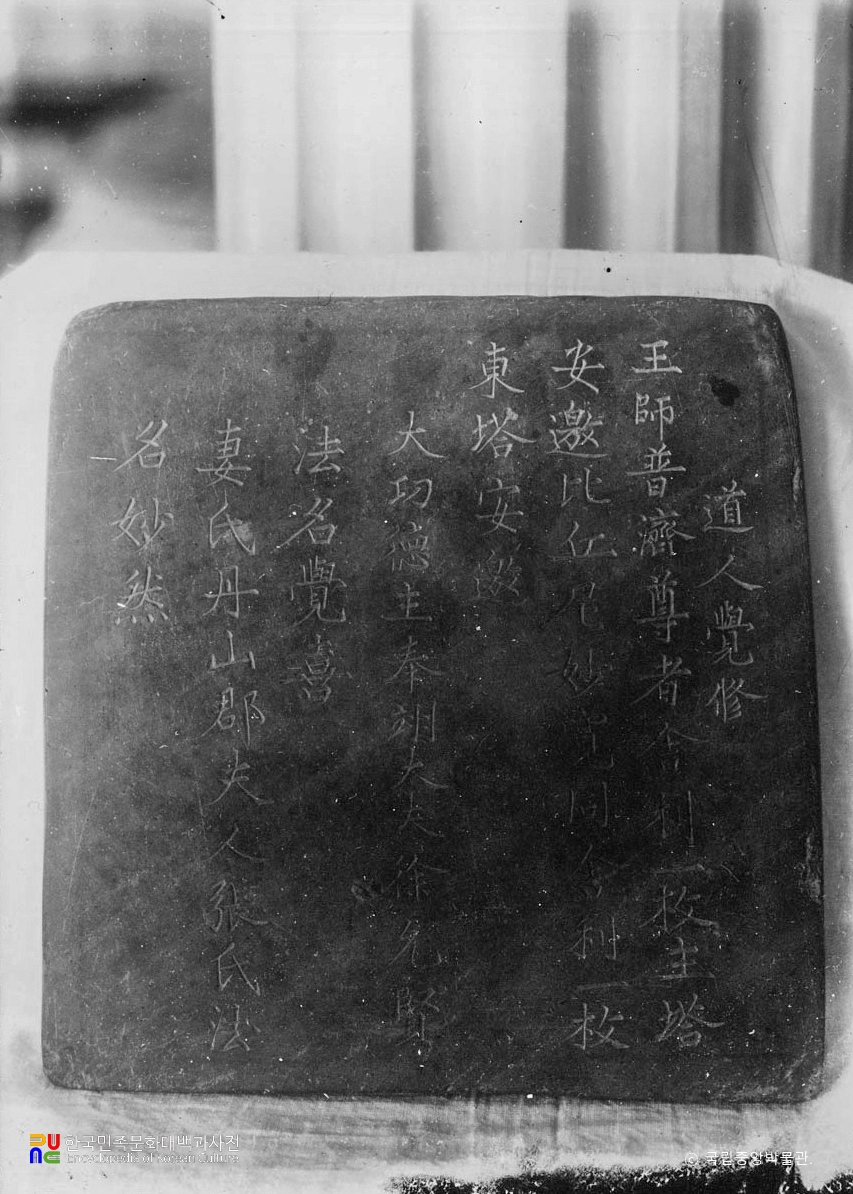 道人覺修
王師普濟尊者舍利一枚主塔
安邀比丘尼妙寬同舍利一枚
東塔安邀
大功德主奉翊大夫徐允賢
法名覺喜
妻氏丹山郡夫人張氏法
名妙然
한국민족문화대백과사전
Encyclopedia of Korean Culture
© 국립중앙박물관